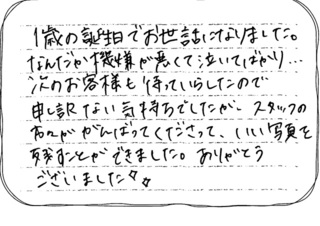 1歳の誕生日でお世話になりました。
なんだか機嫌が悪くて泣いてばかり…
次のお客様も待っていらしたので
申し訳ない気持ちでしたが、スタッフの
方々ががんばってくださって、いい写真を
残すことができました。ありがとう
ございました